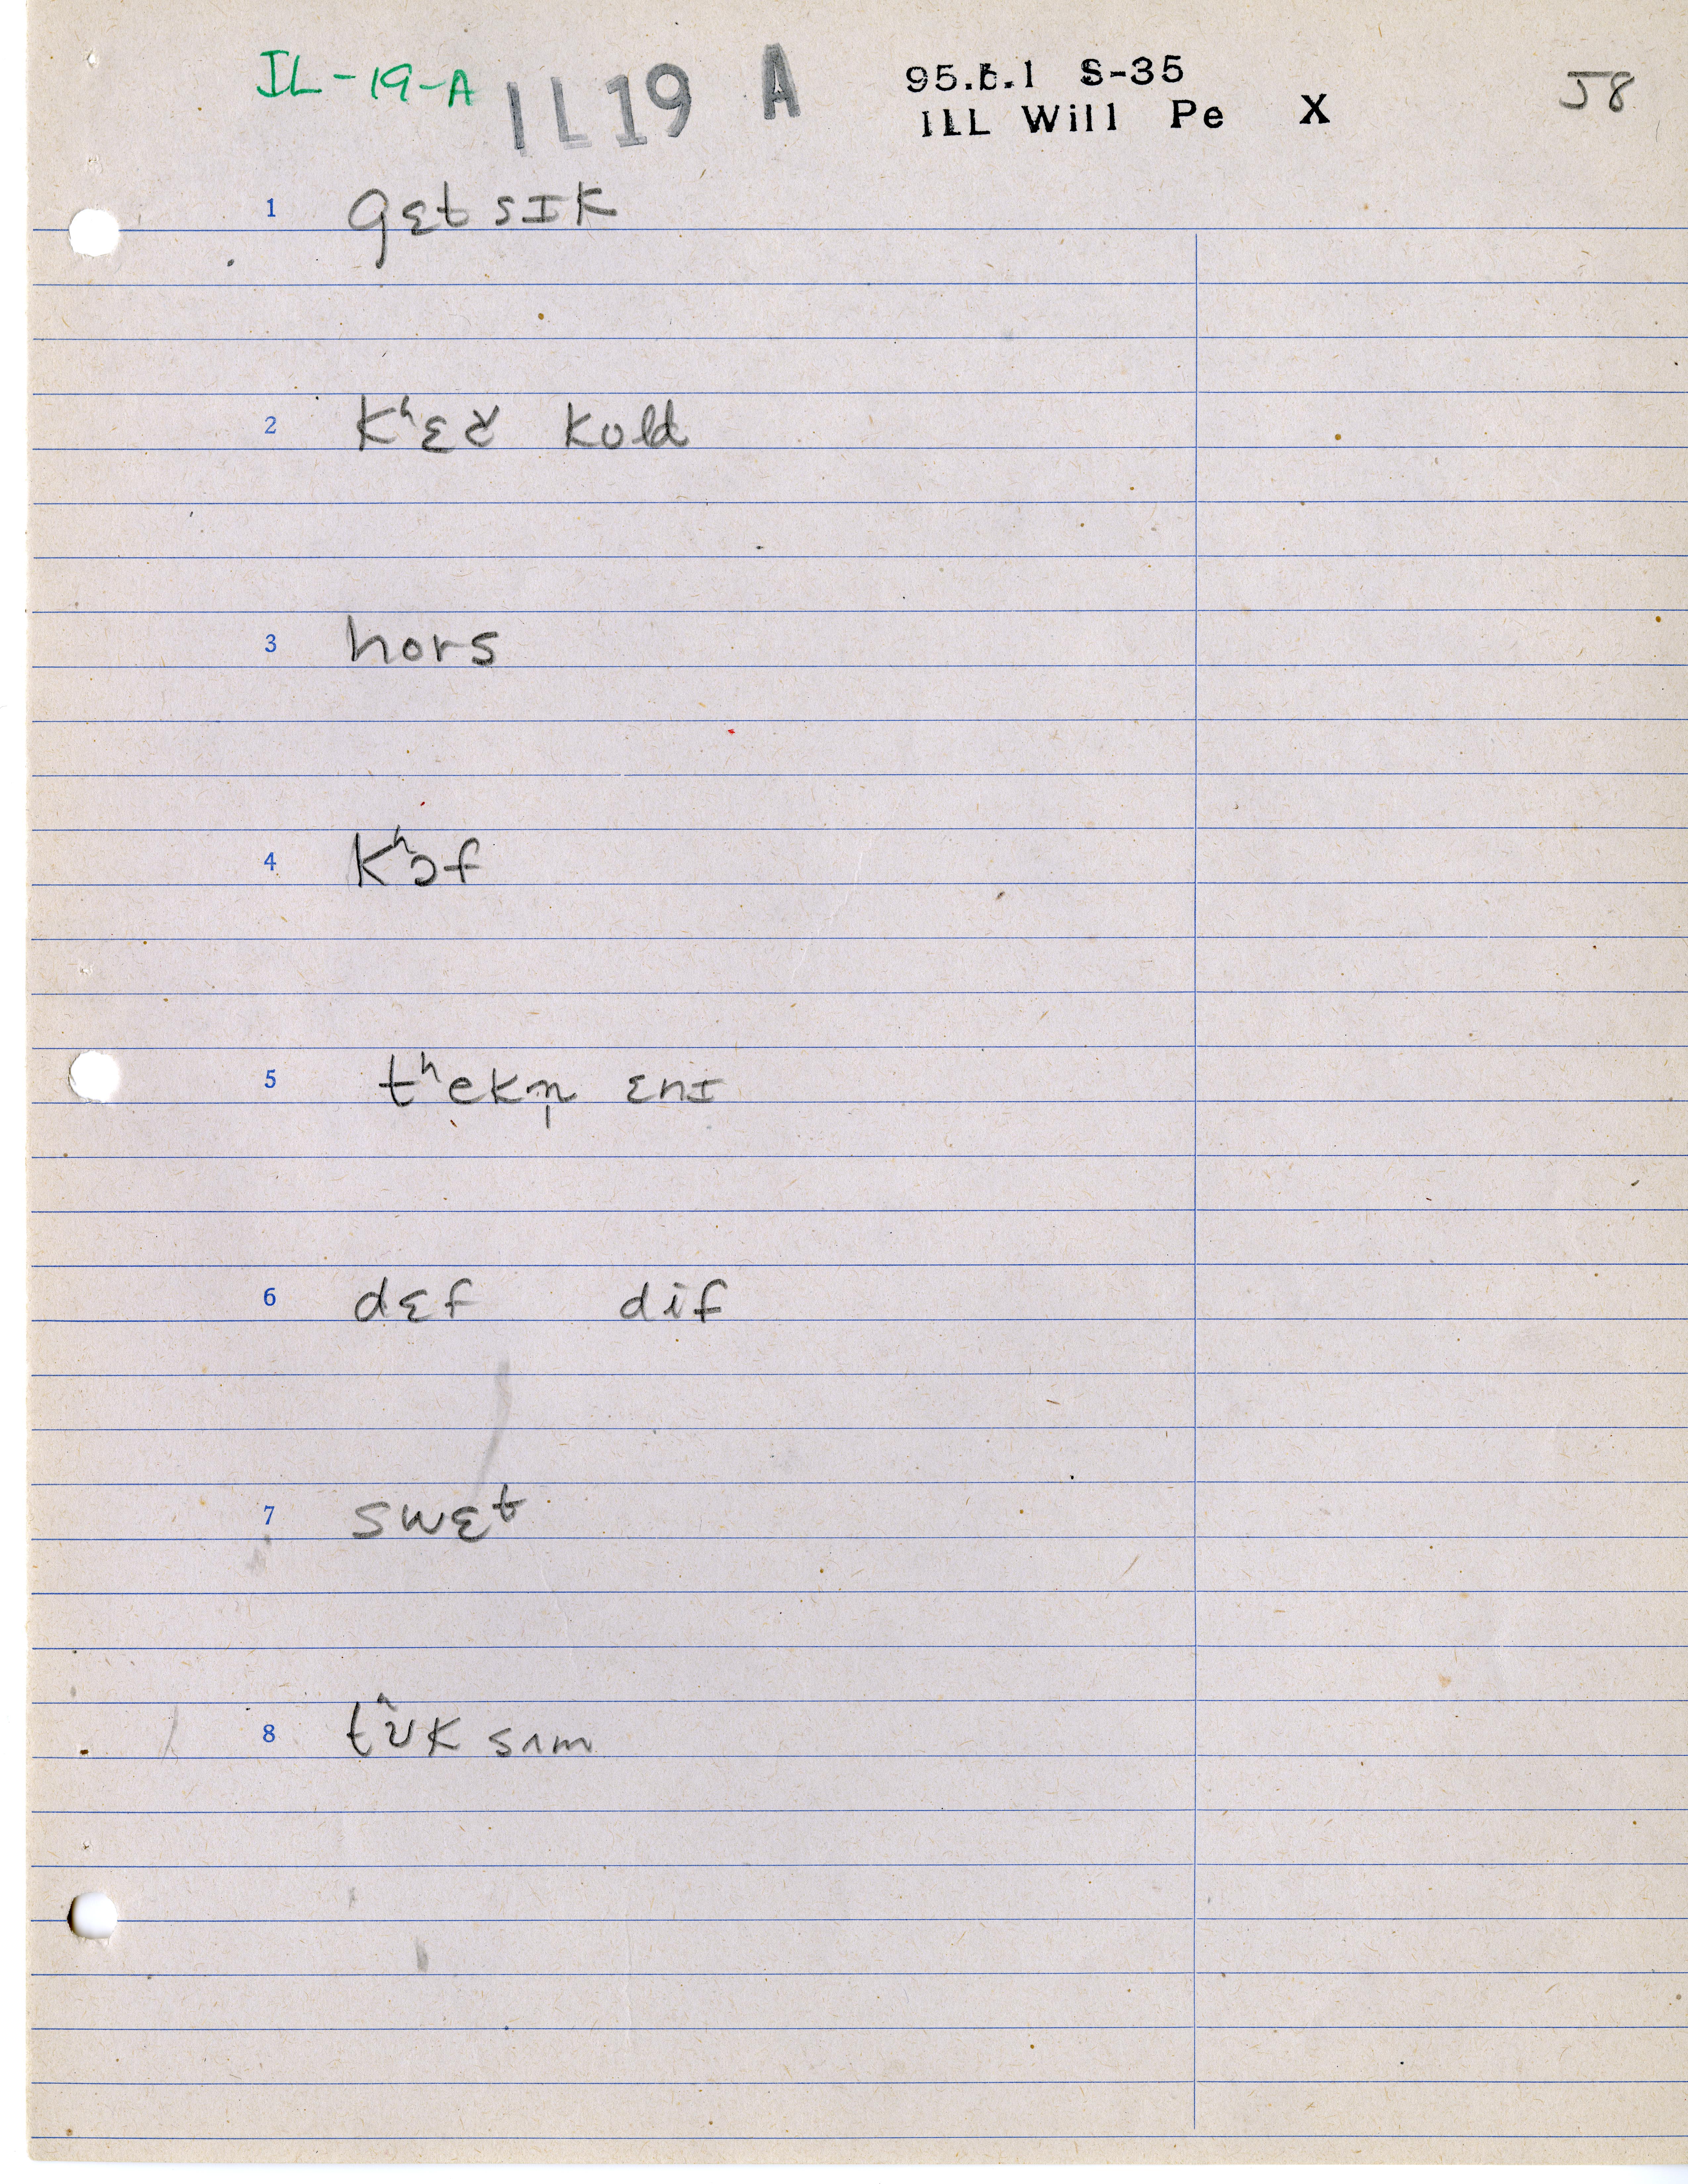 IL-19-A IL19 A 95.6.1 S-35
ILL Will Pe X 58
1 gɛt sɪk
2 kʰɛꞇ̌ kold
3 hors
4 kʰɔf
5 tʰekn̩ ɛnɪ
6 dɛf dif
7 swɛt
8 tʰʊk sʌm